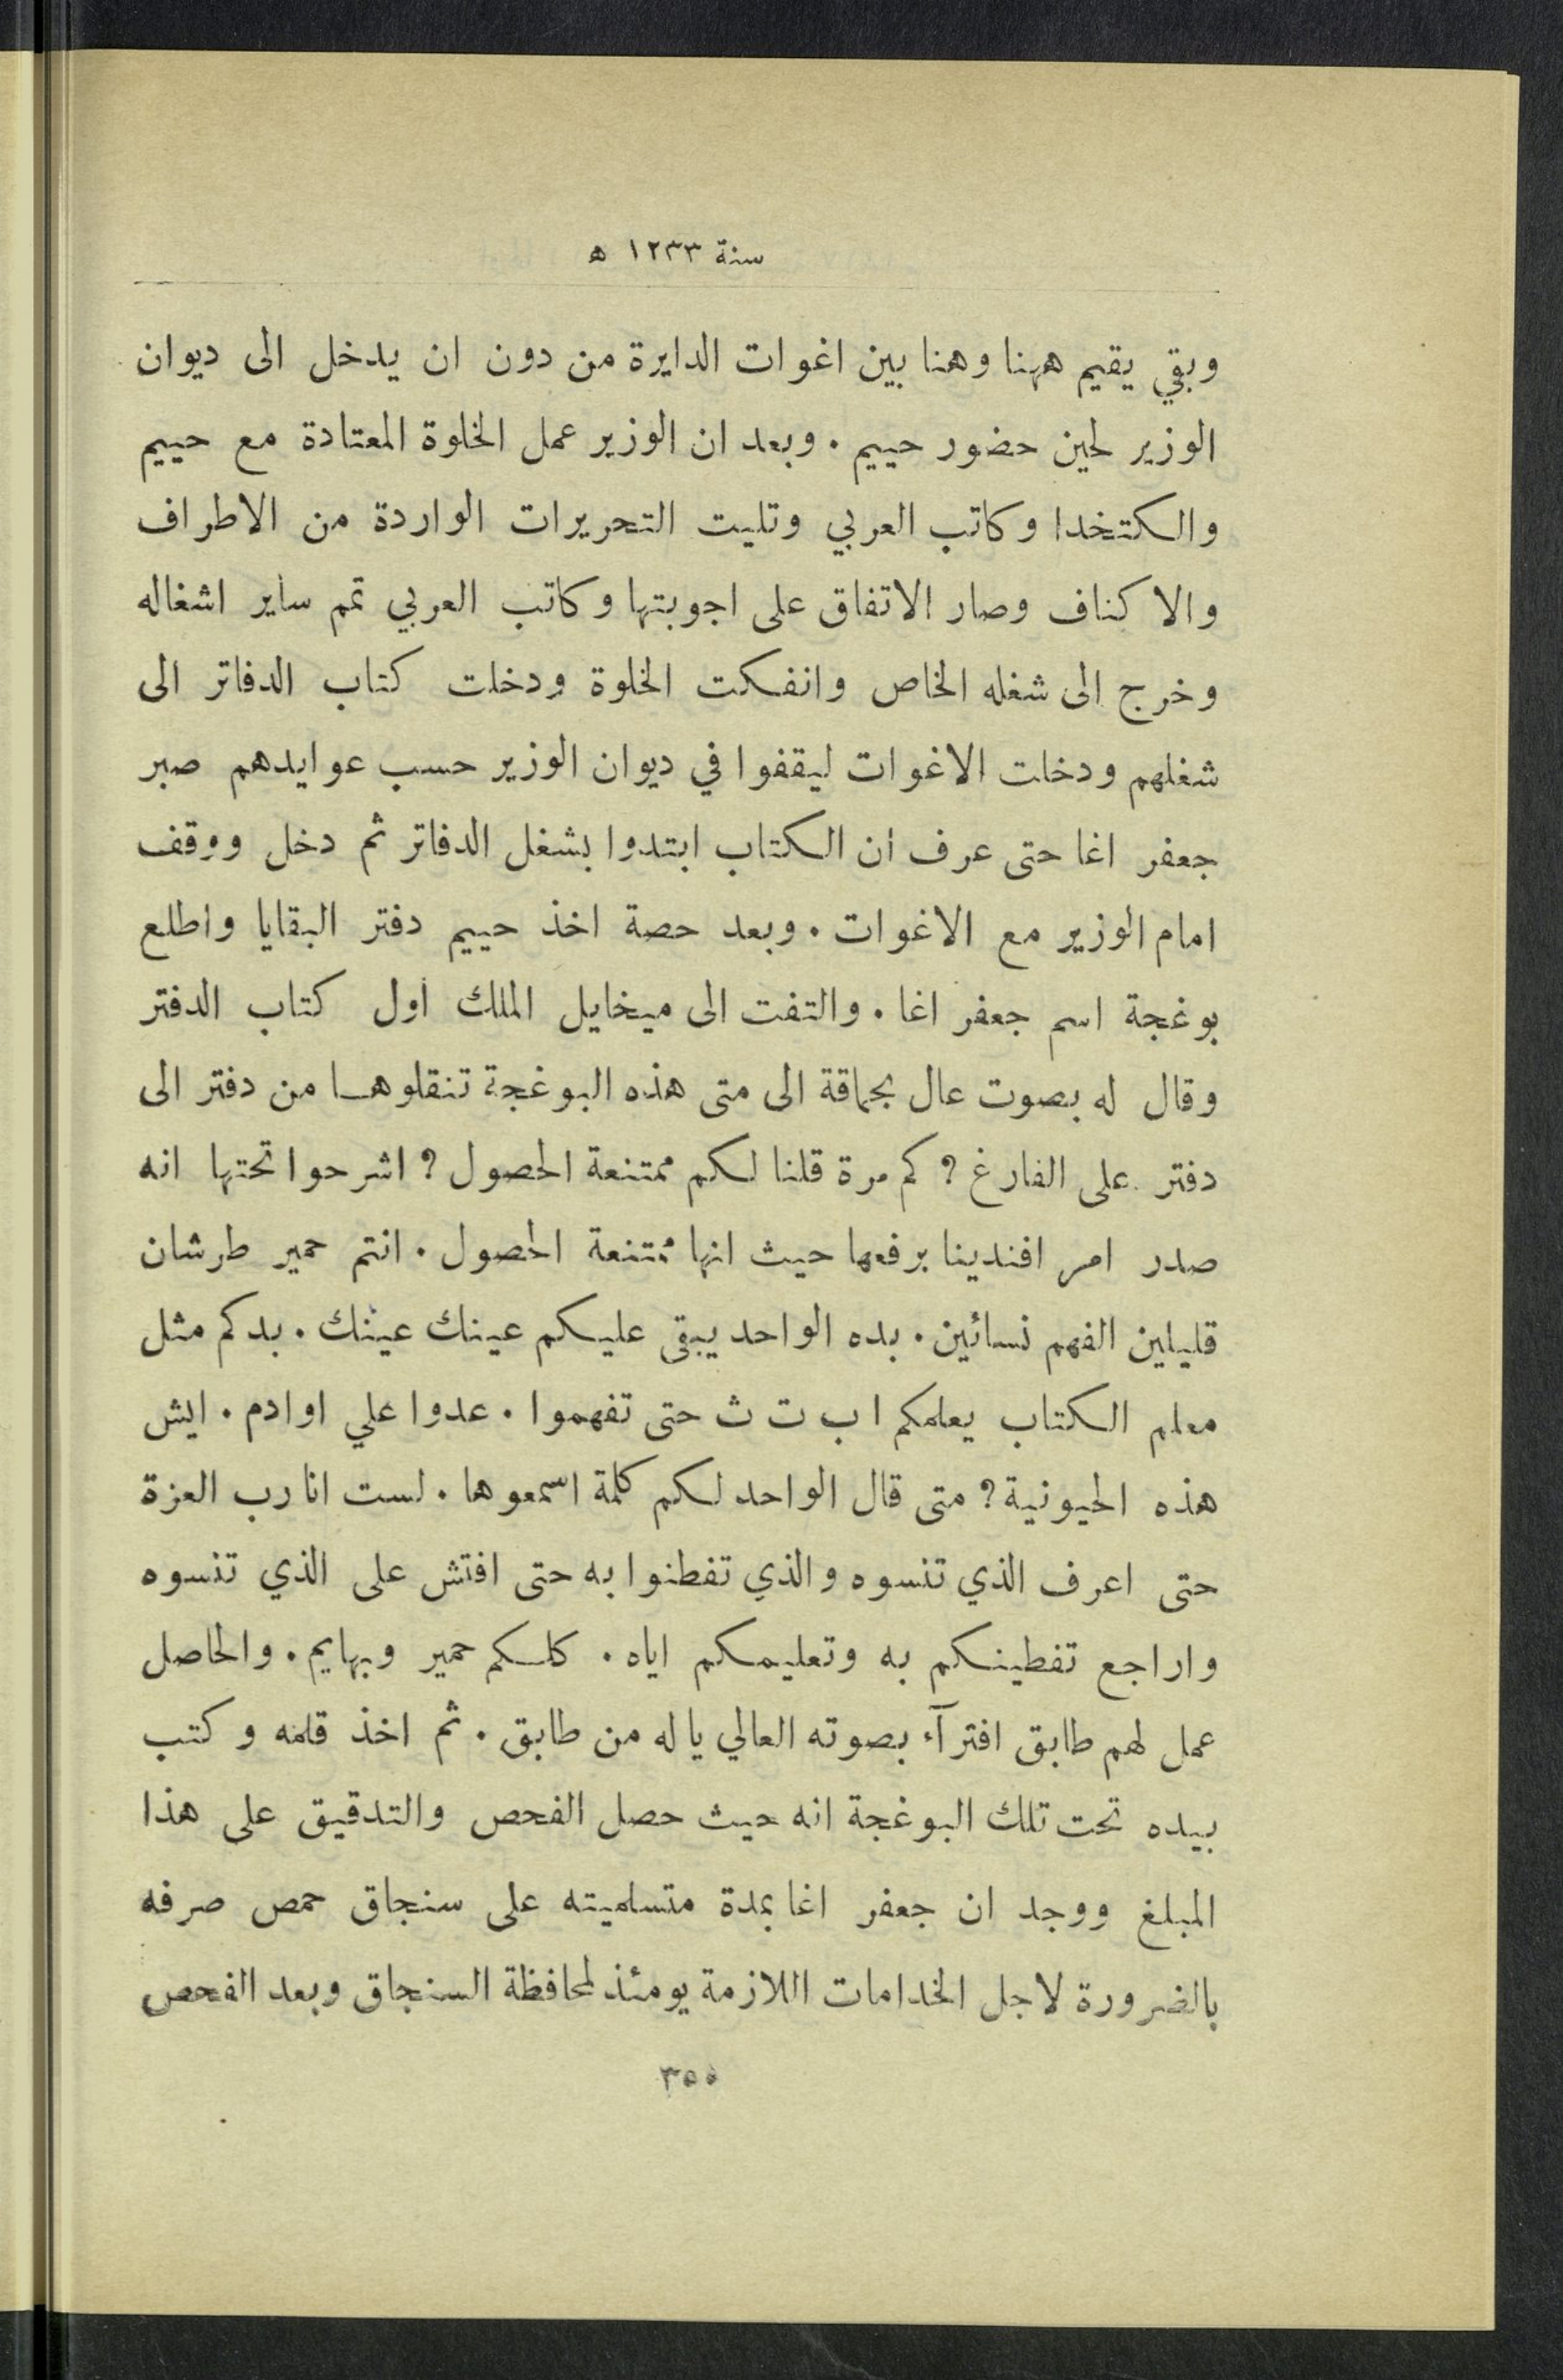 سنة ١٢٣٣ ه
وبقي يقيم ههنا وهنا بين اغوات الدايرة من دون ان يدخل الى ديوان
الوزير لحين حضور حييم . وبعد ان الوزير عمل الخلوة المعتادة مع حييم
والكتخدا وكاتب العربي وتليت التحريرات الواردة من الاطراف
والاكناف وصار الاتفاق على اجوبتها وكاتب العربي تمم ساير اشغاله
وخرج الى شغله الخاص وانفكت الخلوة ودخلت كتاب الدفاتر الى
شغلهم ودخلت الاغوات ليقفوا في ديوان الوزير حسب عوايدهم صبر
جعفر اغا حتى عرف ان الكتاب ابتدوا بشغل الدفاتر ثم دخل ووقف
امام الوزير مع الاغوات . وبعد حصة اخذ حييم دفتر البقايا واطلع
بوغجة اسم جعفر اغا . والتفت الى ميخايل الملك اول كتاب الدفتر
وقال له بصوت عال بحماقة الى متى هذه البوغجة تنقلوها من دفتر الى
دفتر على الفارغ ؟ كم مرة قلنا لكم ممتنعة الحصول ؟ اشرحوا تحتها انه
صدر امر افندينا برفعها حيث انها ممتنعة الحصول . انتم حمير طرشان
قليلين الفهم نسائين . بده الواحد يبقى عليكم عينك عينك . بدكم مثل
معلم الكتاب يعلمكم ا ب ت ث حتى تفهموا . عدوا علي اوادم . ايش
هذه الحيونية ؟ متى قال الواحد لكم كلمة اسمعوها . لست انا رب العزة
حتى اعرف الذي تنسوه والذي تفطنوا به حتى افتش على الذي تنسوه
واراجع تفطينكم به وتعليمكم اياه . كلكم حمير وبهايم . والحاصل
عمل لهم طابق افترآء بصوته العالي يا له من طابق . ثم اخذ قلمه وكتب
بيده تحت تلك البوغجة انه حيث حصل الفحص والتدقيق على هذا
المبلغ ووجد ان جعفر اغا بمدة متسلميته على سنجاق حمص صرفه
بالضرورة لاجل الخدامات اللازمة يومئذ لمحافظة السنجاق وبعد الفحص
٣٥٥